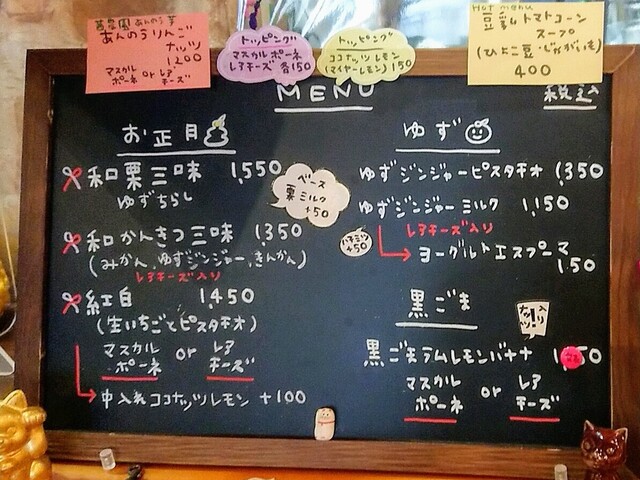 あんのうりんご
ナッツ
1200
マスカルポーネ or レアチーズ
トッピング
マスカルポーネ
レアチーズ 各150
トッピング
ココナッツレモン
(マイヤーレモン) 150
Hot menu
豆乳トマトコーン
スープ
(ひよこ豆・じゃがいも)
400
MENU
税込
お正月
和栗三味 1,550
ゆずちらし
ベース
栗ミルク
+50
和かんきつ三味 1,350
(みかん、ゆずジンジャー、きんかん)
レアチーズ入り
紅白 1,450
(生いちごとピスタチオ)
マスカルポーネ or レアチーズ
中入れココナッツレモン +100
ゆず
ゆずジンジャーピスタチオ 1,350
ゆずジンジャーミルク 1,150
レアチーズ入り
ハチミツ
+50
ヨーグルトエスプーマ
150
黒ごま
ナッツ入り!
黒ごまラムレモンバナナ
マスカルポーネ or レアチーズ